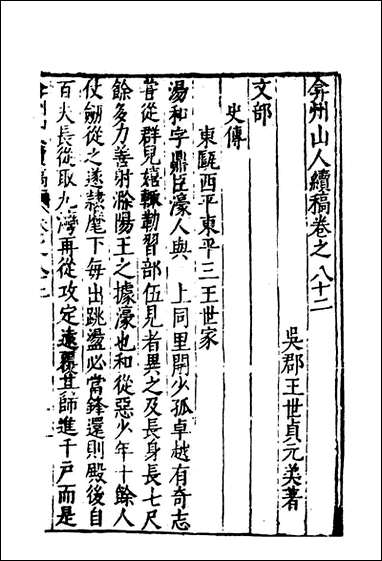 弇州山人續稿卷之八十二
吳郡王世貞元美著
文部
史傳
東甌西平東平三王世家
湯和字鼎臣濠人與　上同里閈少孤卓越有奇志
甞從群兒嬉輙勒習部伍見者異之及長身長七尺
餘多力善射滁陽王之據濠也和從惡少年十餘人
仗劒從之遂隷麾下每出跳盪必當鋒還則殿後自
百夫長從取大灣再從攻定遠覆其師進千戸而是